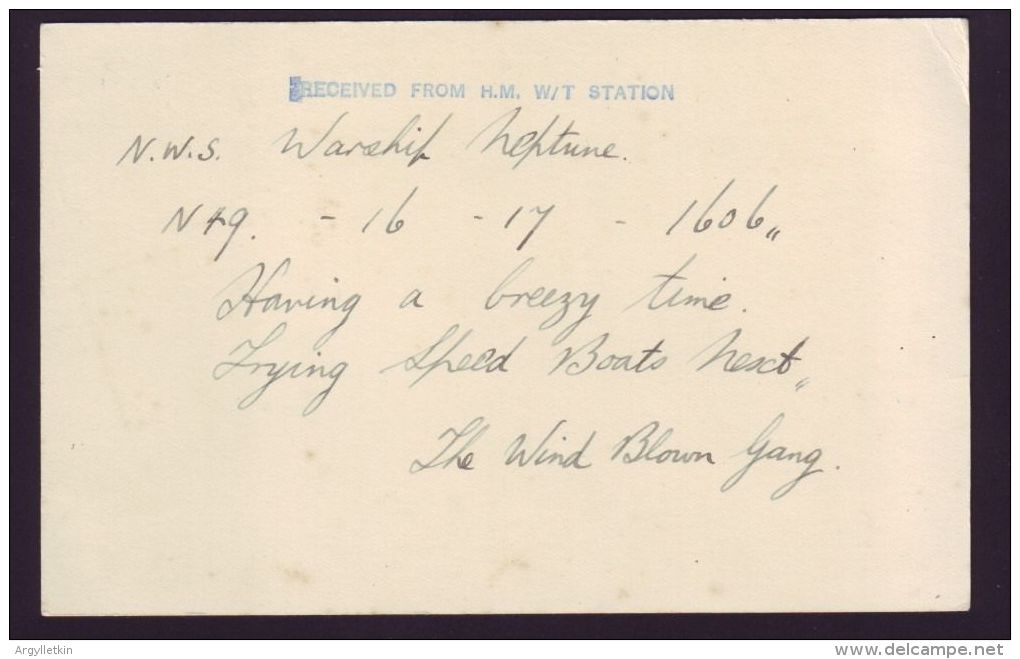 RECEIVED FROM H.M. W/T STATION
N.W.S. Warship Neptune.
N49. - 16 - 17 - 1606"
Having a breezy time.
Trying Speed Boats Next"
The Wind Blown Gang.
Argylletkin
delcampe.net